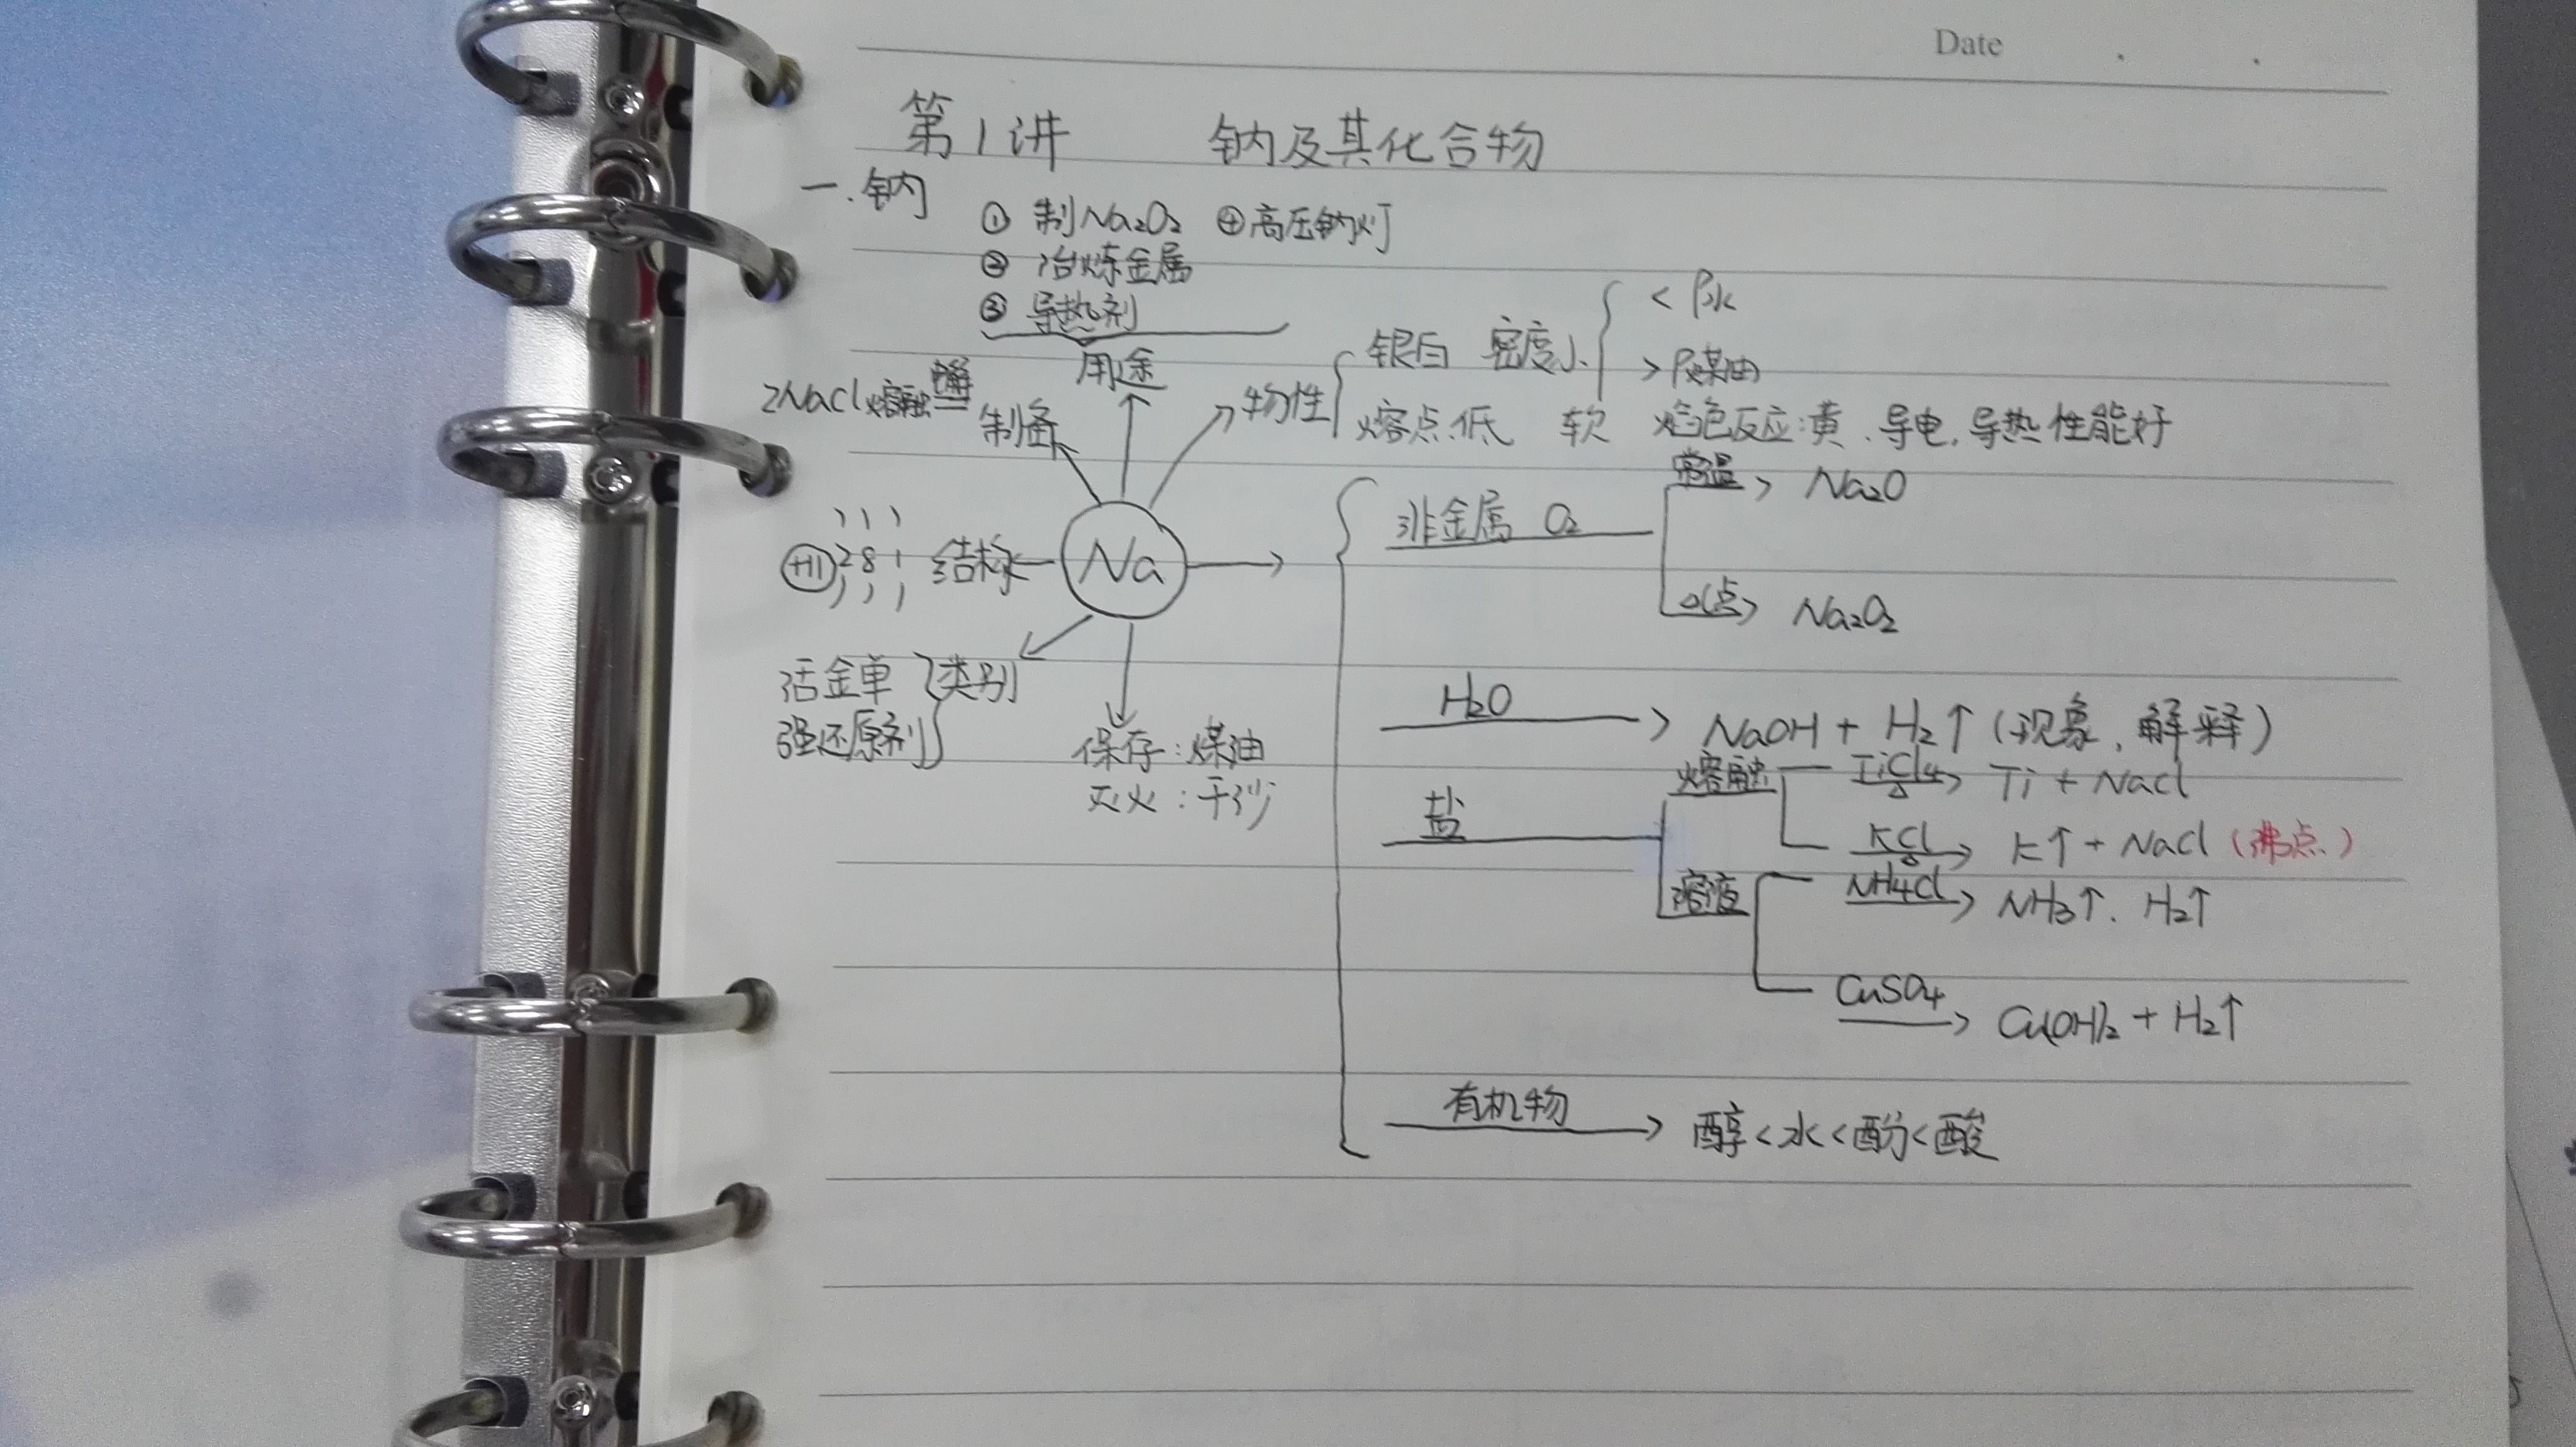 Date
第1讲 钠及其化合物
一.钠
① 制Na₂O₂ ④高压钠灯
② 冶炼金属
③ 导热剂
用途
2NaCl熔融 电解
制备
物性
银白 密度小
< ρ水
> ρ煤油
熔点低 软 焰色反应:黄、导电,导热性能好
Na
结构
+11 2 8 1
类别
活金单
强还原剂
保存:煤油
灭火:干沙
非金属 O₂
常温 Na₂O
点 Na₂O₂
H₂O NaOH + H₂↑ (现象,解释)
盐
熔融
TiCl₄ △ Ti + NaCl
KCl △ K↑ + NaCl (沸点)
溶液
NH₄Cl NH₃↑. H₂↑
CuSO₄ Cu(OH)₂ + H₂↑
有机物 醇<水<酚<酸